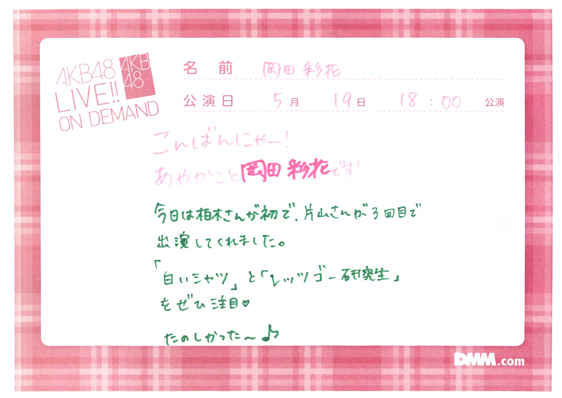 AKB48
LIVE!!
ON DEMAND
AKB
48
名 前 岡田 彩花
公演日 5月 19日 18:00 公演
こんばんにゃー!
あやかこと岡田彩花です!
今日は柏木さんが初で、片山さんが3回目で
出演してくれました。
「白いシャツ」と「レッツゴー研究生」
をぜひ注目♡
たのしかった〜♪
DMM.com